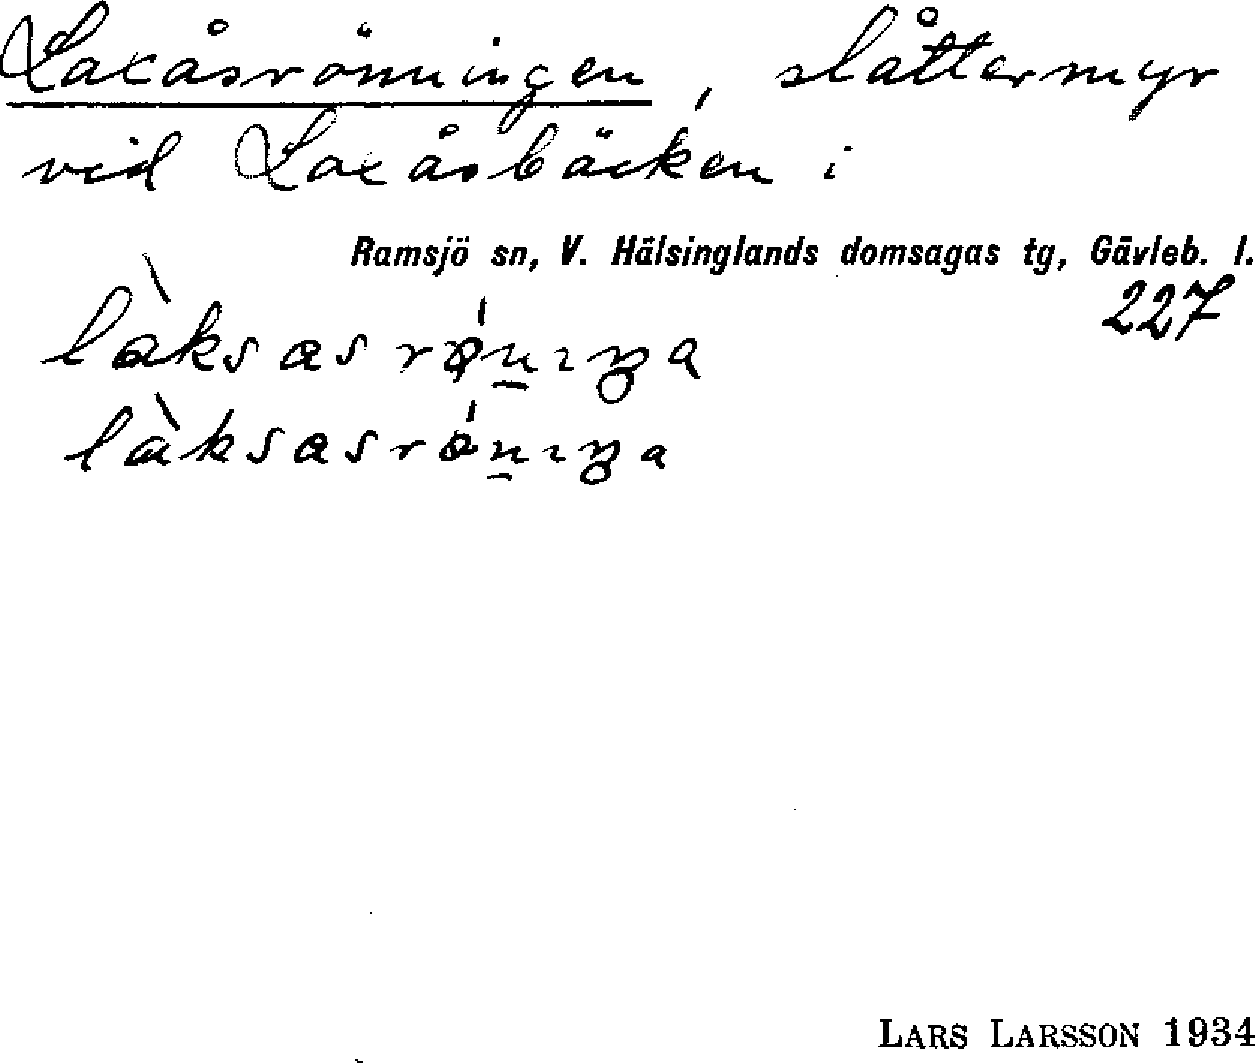 Laxåsrönningen, slåttermyr
vid Laxåsbäcken i
Ramsjö sn, V. Hälsinglands domsagas tg, Gävleb. l.
227
LARS LARSSON 1934